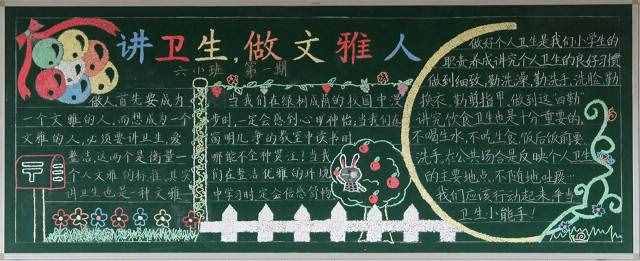 讲卫生,做文雅人
六小班 第一期
做人首先要成为
一个文雅的人,而想成为一个
文雅的人,必须要讲卫生,爱
整洁,这两个是衡量一
个人文雅的标准,其实
讲卫生也是一种文雅
当我们在绿树成荫的校园中漫
步时,一定会感到心旷神怡,当我们在
窗明几净的教室中读书时
哪能不全神贯注!当我
们在整洁优雅的环境
中学习时定会倍感舒畅
做好个人卫生是我们小学生的
职责养成讲究个人卫生的良好习惯
做到细致,勤洗澡,勤洗手,洗脸,勤
换衣,勤剪指甲,做到这四勤
讲究饮食卫生也是十分重要的,
不喝生水,不吃生食饭后饭前要
洗手,公共场合是反映个人卫生
的主要地点,不随地吐痰…
我们应该行动起来,争当
卫生小能手!